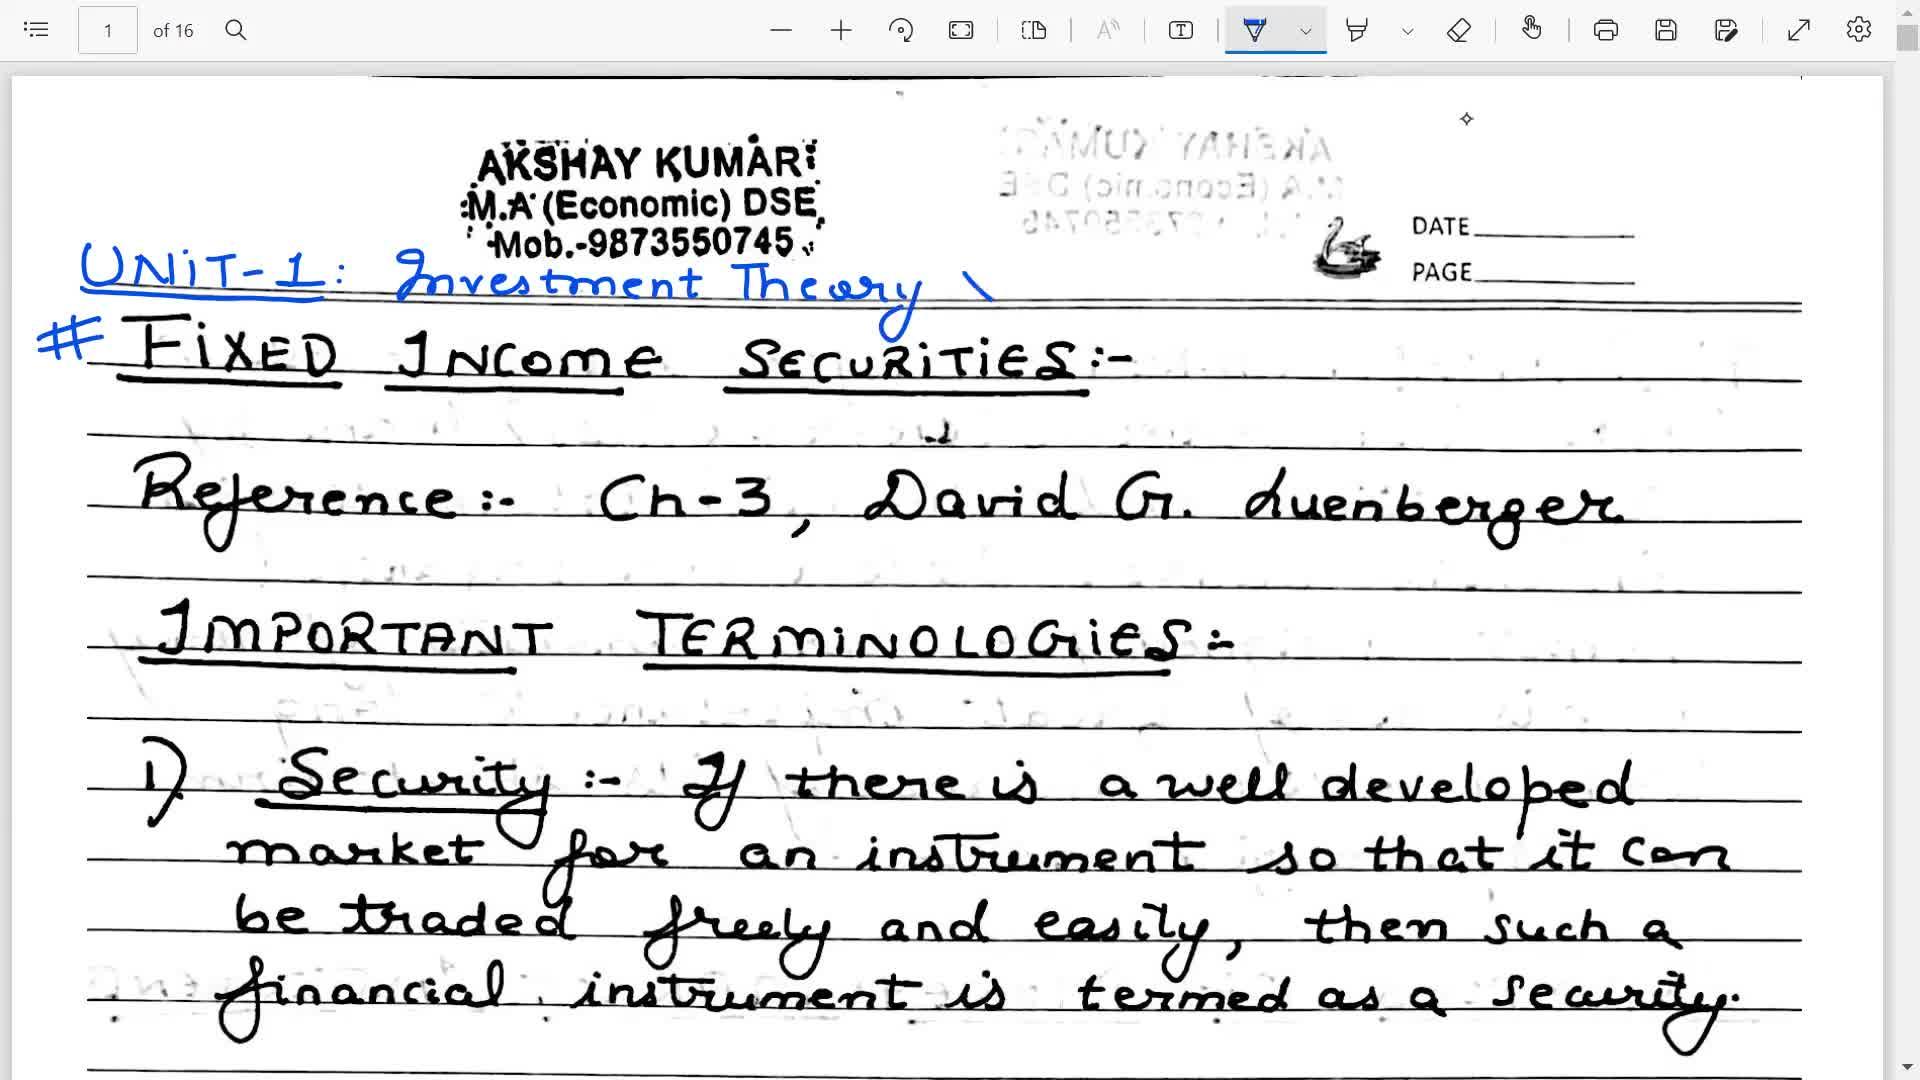 1 of 16
AKSHAY KUMAR
M.A (Economic) DSE
Mob.-9873550745
DATE
PAGE
UNIT-1: Investment Theory
# FIXED INCOME SECURITIES:-
Reference:- Ch-3, David G. Luenberger
IMPORTANT TERMINOLOGIES:-
1) Security:- If there is a well developed
market for an instrument so that it can
be traded freely and easily, then such a
financial instrument is termed as a security.